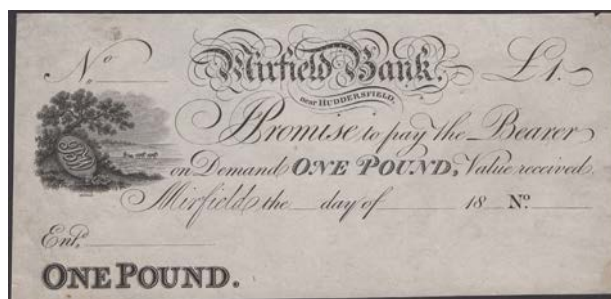 No Mirfield Bank. £1.
near HUDDERSFIELD.
I Promise to pay the Bearer
on Demand ONE POUND, Value received
Mirfield the day of 18 No
Entd.
ONE POUND.